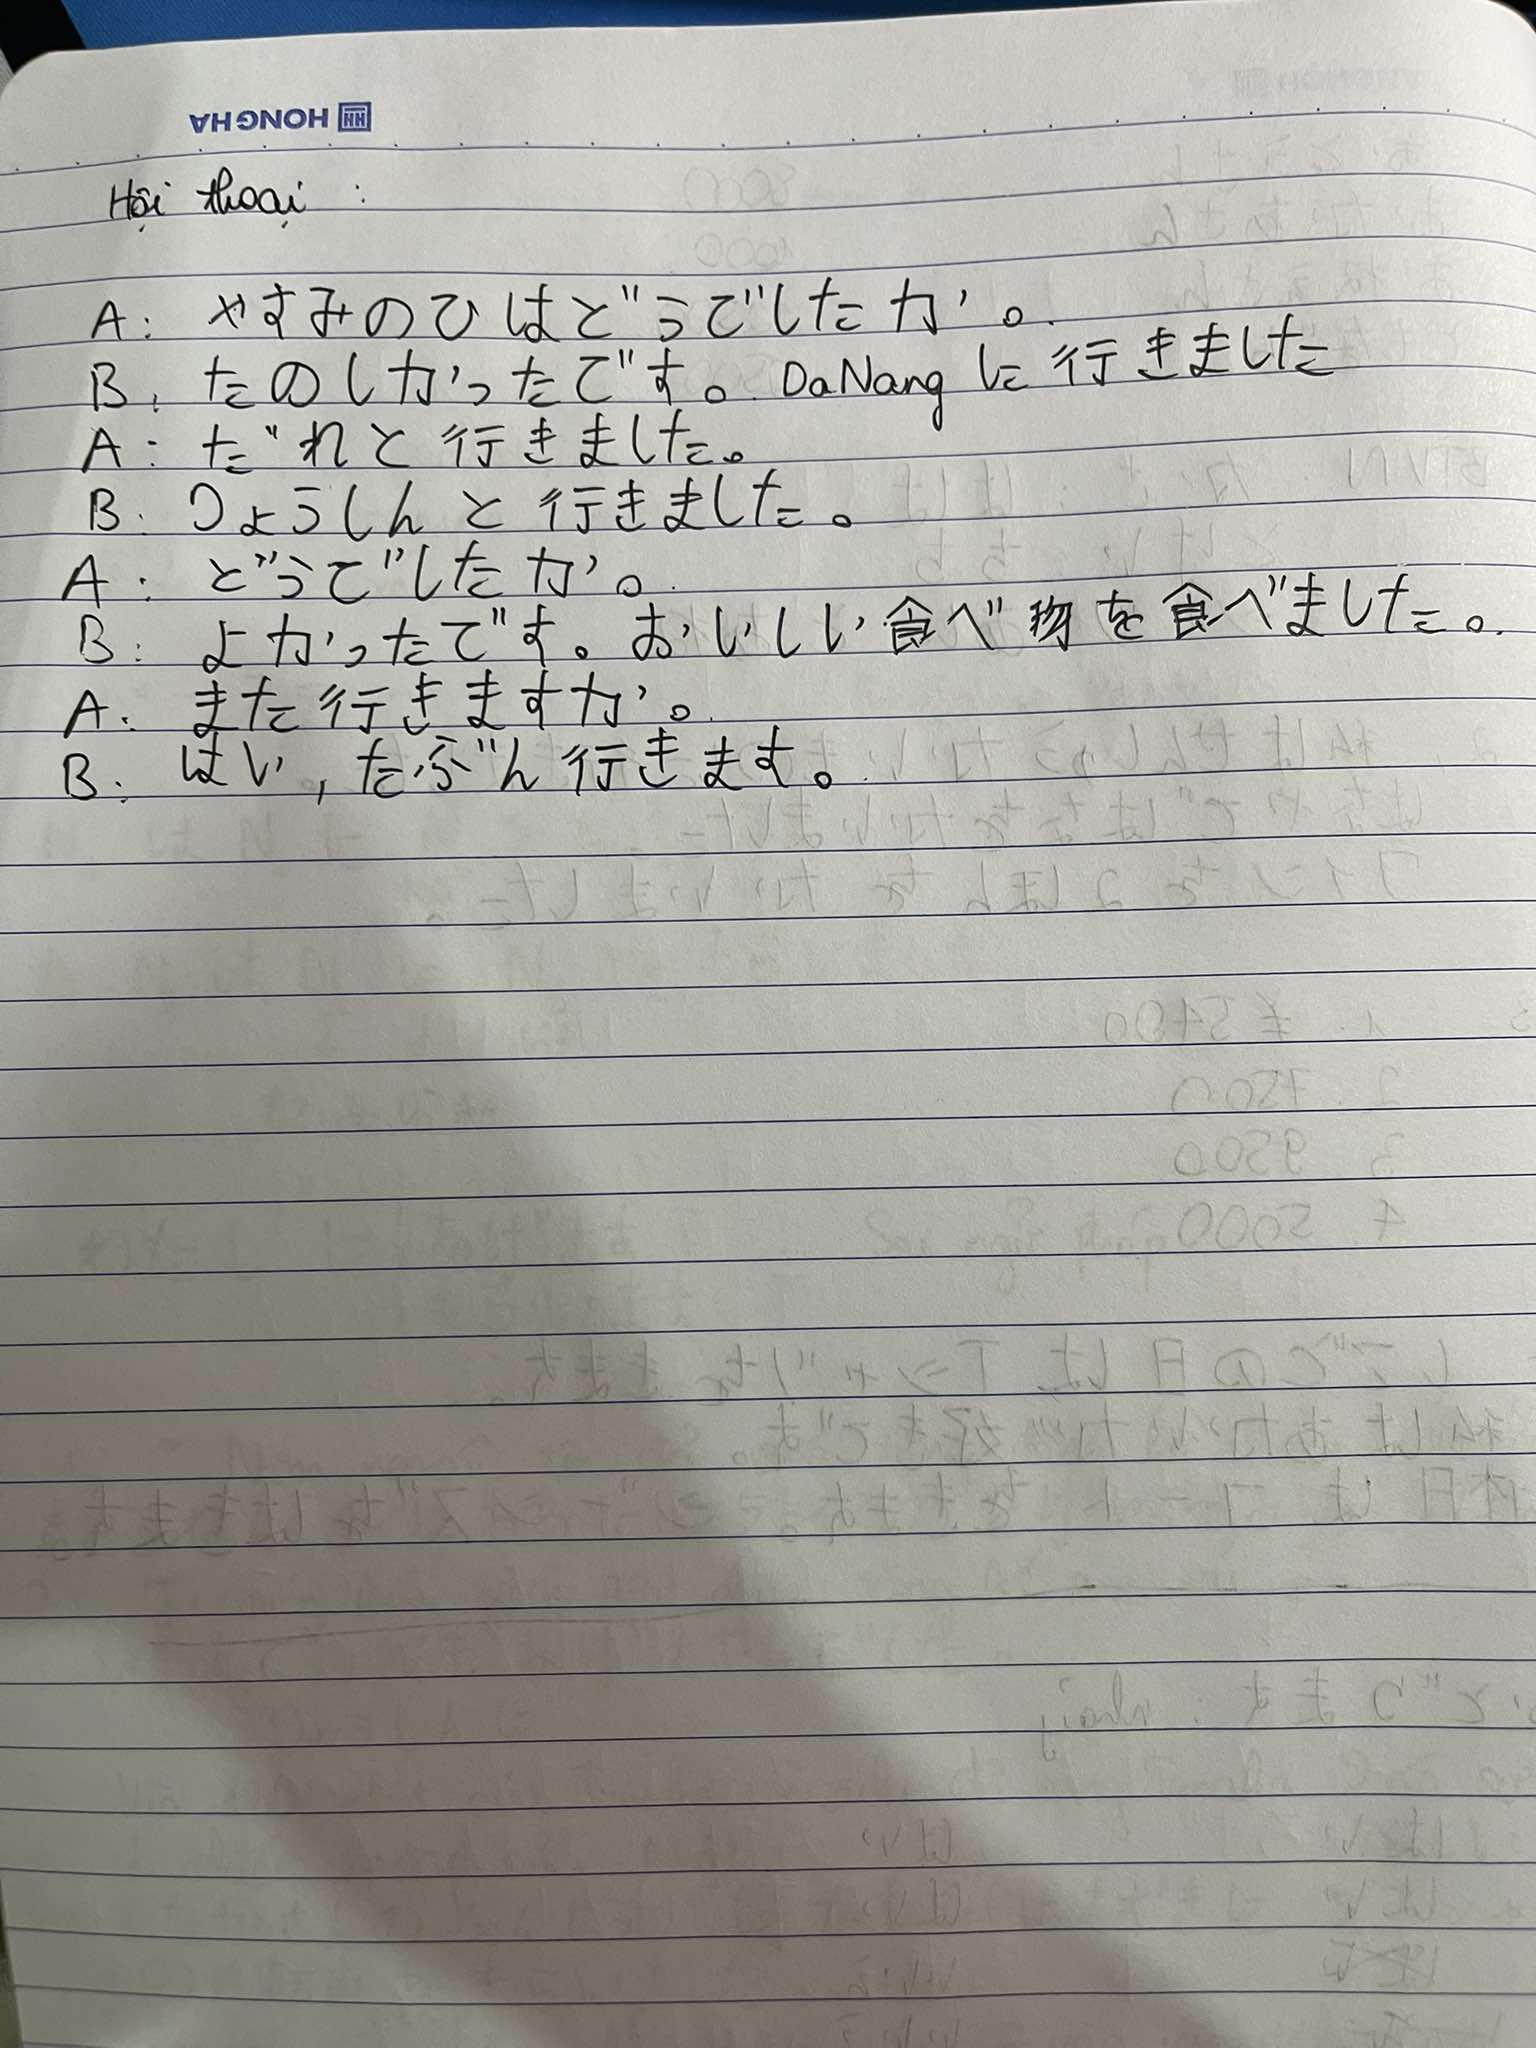 HONG HA
Hội thoại :
A: やすみのひはどうでしたか。
B: たのしかったです。DaNangに行きました
A: だれと行きました。
B: りょうしんと行きました。
A: どうでしたか。
B: よかったです。おいしい食べ物を食べました。
A: また行きますか。
B: はい, たぶん行きます。